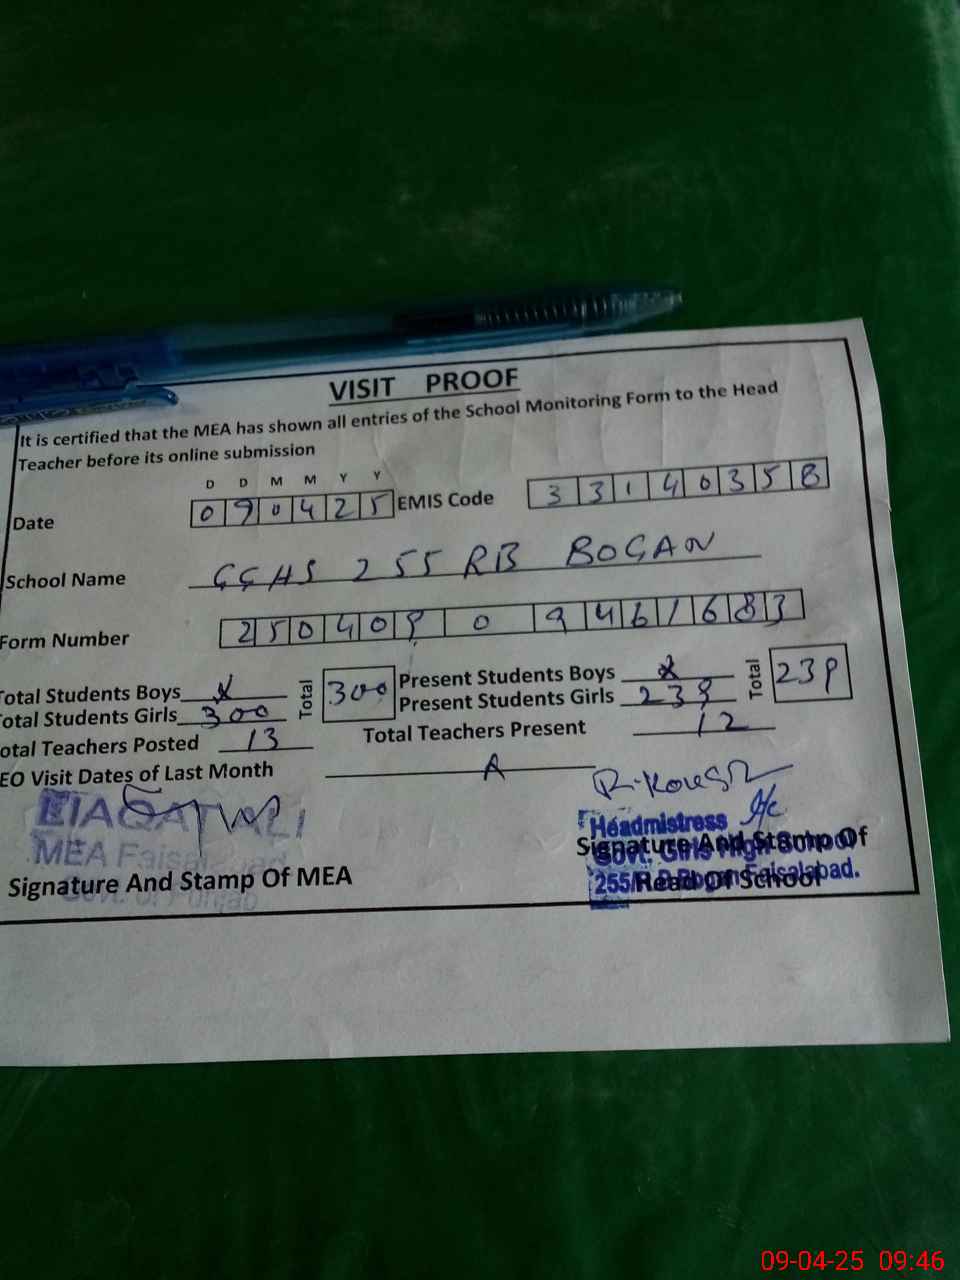 VISIT PROOF
It is certified that the MEA has shown all entries of the School Monitoring Form to the Head
Teacher before its online submission
D D M M Y Y
Date 0 9 0 4 2 5 EMIS Code 3 3 1 4 0 3 5 8
School Name GGHS 255 RB BOGAN
Form Number 2 5 0 4 0 9 0 9 4 6 1 6 8 3
Total Students Boys x Total 300 Present Students Boys x Total 239
Total Students Girls 300 Present Students Girls 239
Total Teachers Posted 13 Total Teachers Present 12
EO Visit Dates of Last Month A
LIAQAT ALI
MEA Faisalabad
Govt. of Punjab
Signature And Stamp Of MEA
Headmistress
Govt. Girls High School
255/R.B Bogan Faisalabad.
Signature And Stamp Of
Head Of School
09-04-25 09:46